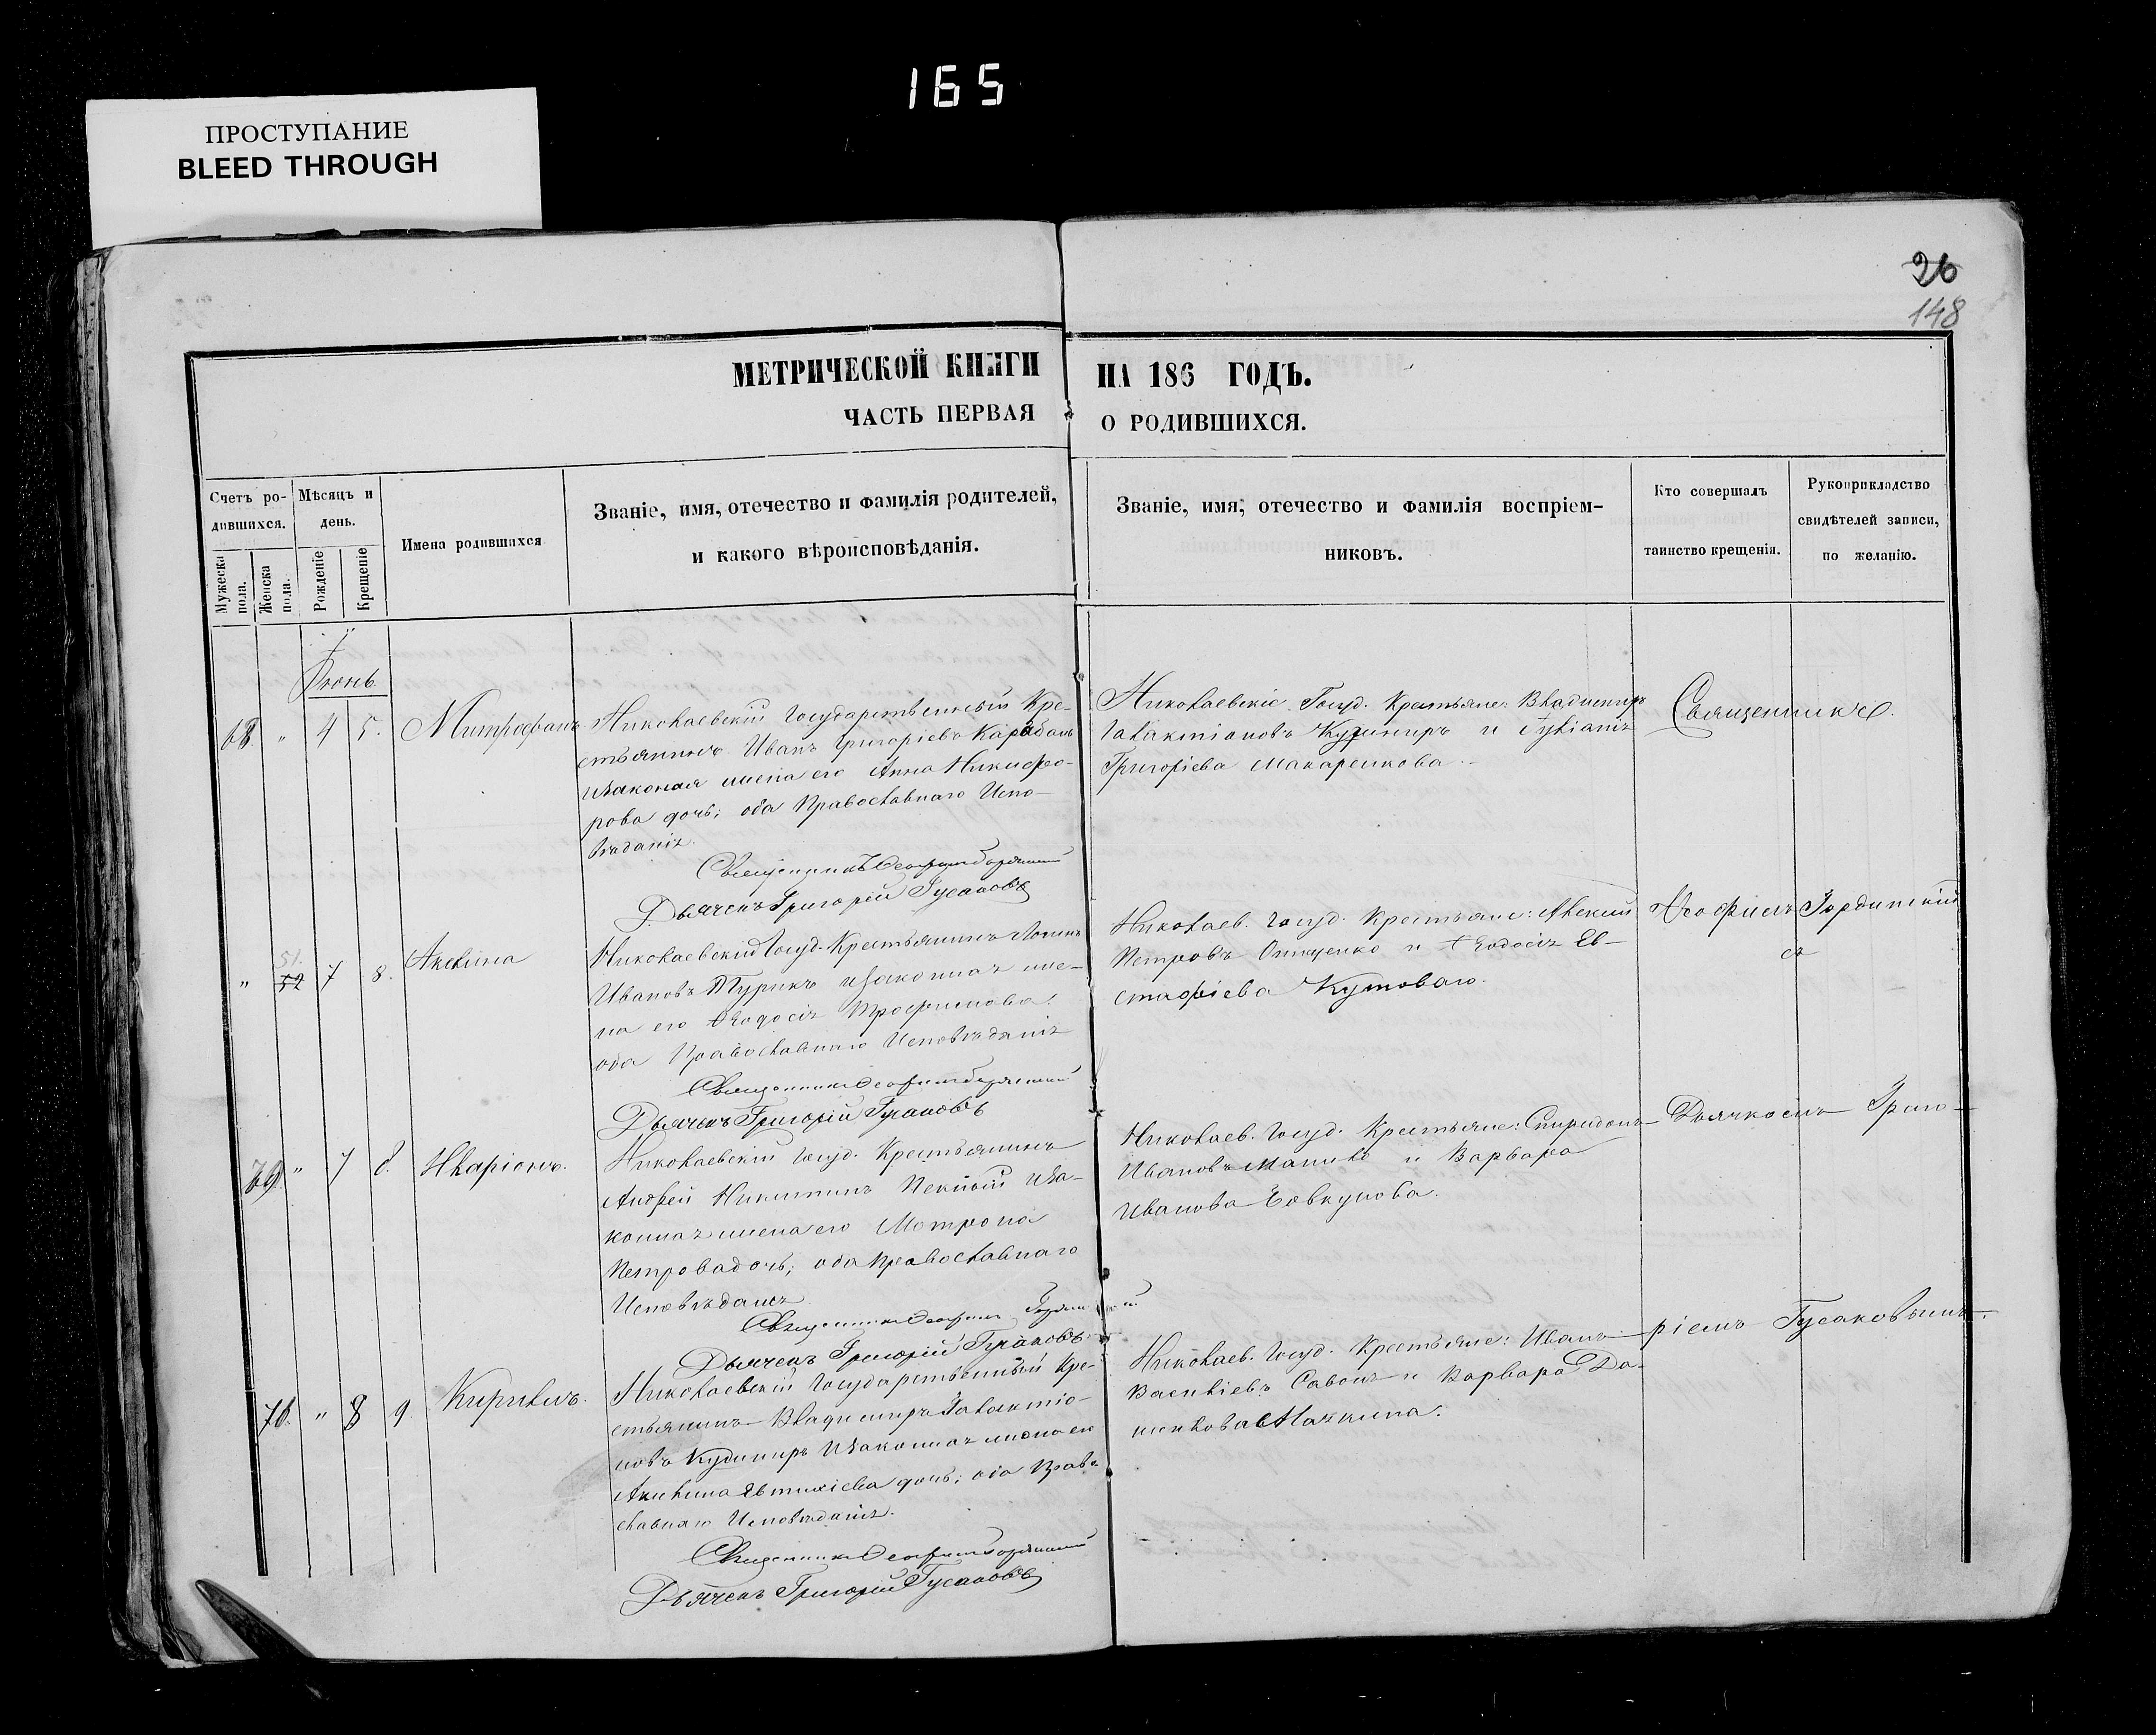 165
ПРОСТУПАНИЕ
BLEED THROUGH
26
148
МЕТРИЧЕСКОЙ КНИГИ НА 186 ГОДЪ.
ЧАСТЬ ПЕРВАЯ О РОДИВШИХСЯ.
Счетъ ро-
дившихся.
Мужеска
пола.
Женска
пола.
Мѣсяцъ и
день.
Рожденіе
Крещеніе
Имена родившихся
Званіе, имя, отечество и фамилія родителей,
и какого вѣроисповѣданія.
Званіе, имя, отечество и фамилія воспріем-
никовъ.
Кто совершалъ
таинство крещенія.
Рукоприкладство
свидѣтелей записи,
по желанію.
Іюнь
68. " 4 5. Митрофанъ
Николаевскій Государственный Кре-
стьянинъ Иванъ Григоріевъ
изаконая жена его Анна Никифо-
рова дочь; оба Православнаго Испо-
вѣданія.
Дьячекъ Григорій Гусаковъ
Николаевскіе Госуд. Крестьяне: Владимиръ
Галактіоновъ Кушниръ и
Григоріева Макаренкова.
Священникъ
" 51. 52 7 8. Акелина
Николаевскій Госуд. Крестьянинъ
Ивановъ Турикъ изаконная же-
на его Ѳеодосія Трофимова
оба Православнаго Исповѣданія
Дьячекъ Григорій Гусаковъ
Николаев. Госуд. Крестьяне: Алексій
Петровъ Онищенко и Ѳеодосія Ев-
стафіева Кутоваго.
Ѳеофилъ Гординскій
съ
69 " 7 8. Иларіонъ.
Николаевскій Госуд. Крестьянинъ
Андрей Никитинъ Пекный иза-
конная жена его Мотрона
Петрова дочь; оба Православнаго
Исповѣданія
Дьячекъ Григорій Гусаковъ
Николаев. Госуд. Крестьяне: Спиридонъ
Ивановъ и Варвара
Иванова Човкунова.
Дьячкомъ Григо-
70. " 8 9. Кирилъ.
Николаевскій Государственный Кре-
стьянинъ Владимиръ Галактіо-
новъ Кушниръ изаконная жена его
Акилина Евтихіева дочь; оба Право-
славнаго Исповѣданія.
Дьячекъ Григорій Гусаковъ
Николаев. Госуд. Крестьяне: Иванъ
Васильевъ и Варвара Да-
ріемъ Гусаковымъ.